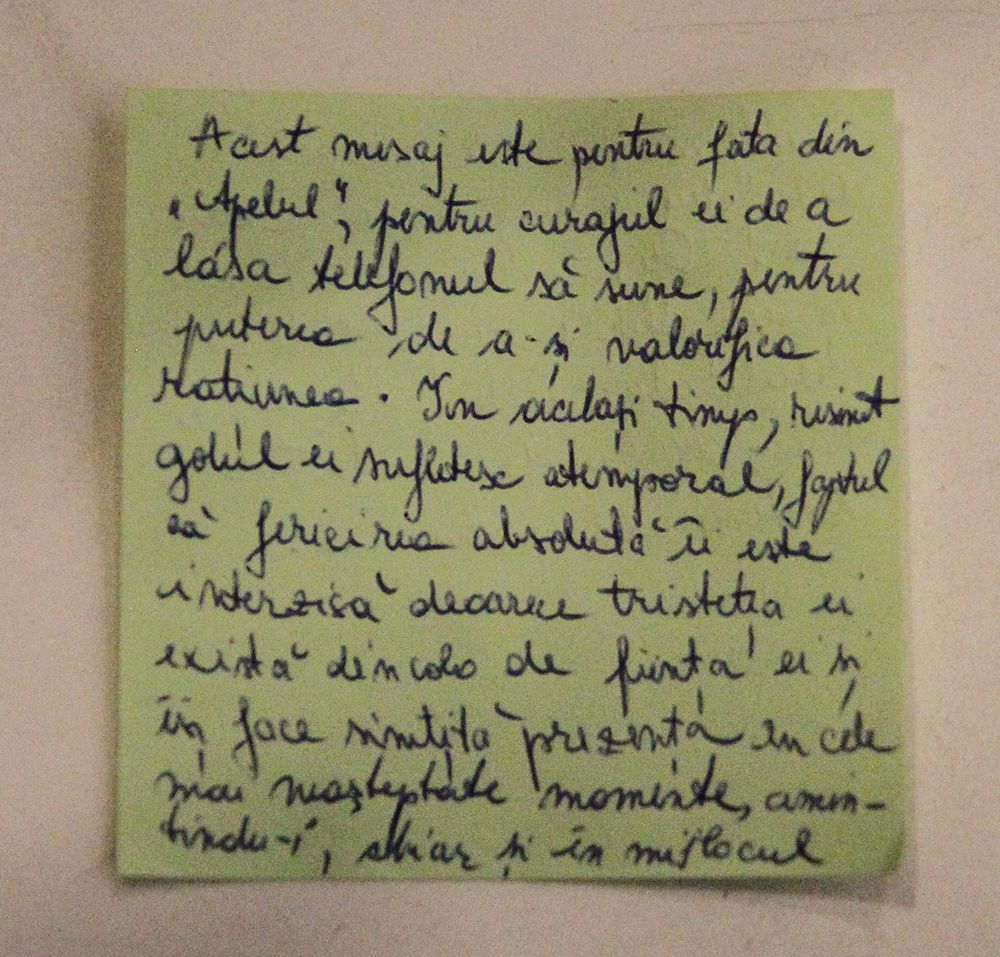 Acest mesaj este pentru fata din
„Apelul”, pentru curajul ei de a
lăsa telefonul să sune, pentru
puterea de a-și valorifica
rațiunea. În același timp, resimt
golul ei sufletesc atemporal, faptul
că fericirea absolută îi este
interzisă deoarece tristețea ei
există dincolo de ființa ei și
își face simțită prezența în cele
mai neașteptate momente, amin-
tindu-i, chiar și în mijlocul